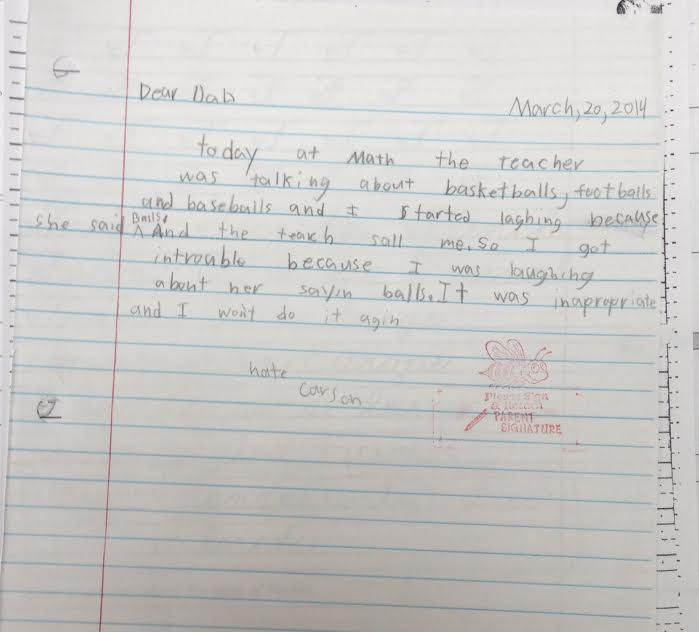 Dear Dab
March, 20, 2014
today at Math the teacher
was talking about basketballs, footballs
and baseballs and I started laghing because
she said Balls. And the teach sall me. So I got
introuble because I was laughing
about her sayin balls. It was inapropriate
and I won't do it agin
hate
carson
Please Sign
& Return
PARENT
SIGNATURE